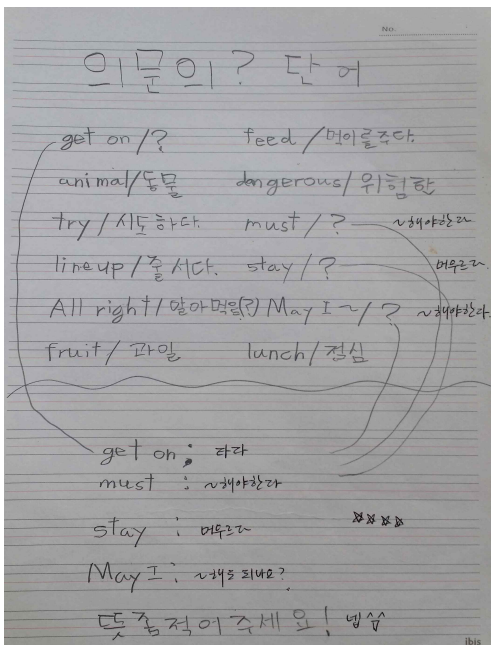 No.
의문의? 단어
get on/? feed/먹이를주다.
animal/동물 dangerous/위험한
try/시도하다. must/? ~해야한다
line up/줄서다. stay/? 머무르다.
All right/알아먹음(?) May I ~/? ~해야한다.
fruit/과일 lunch/점심
get on; 타다
must : ~해야한다
stay : 머무르다 ☆☆☆☆
May I : ~해도 되나요?
뜻좀적어주세요! 넵^^
ibis